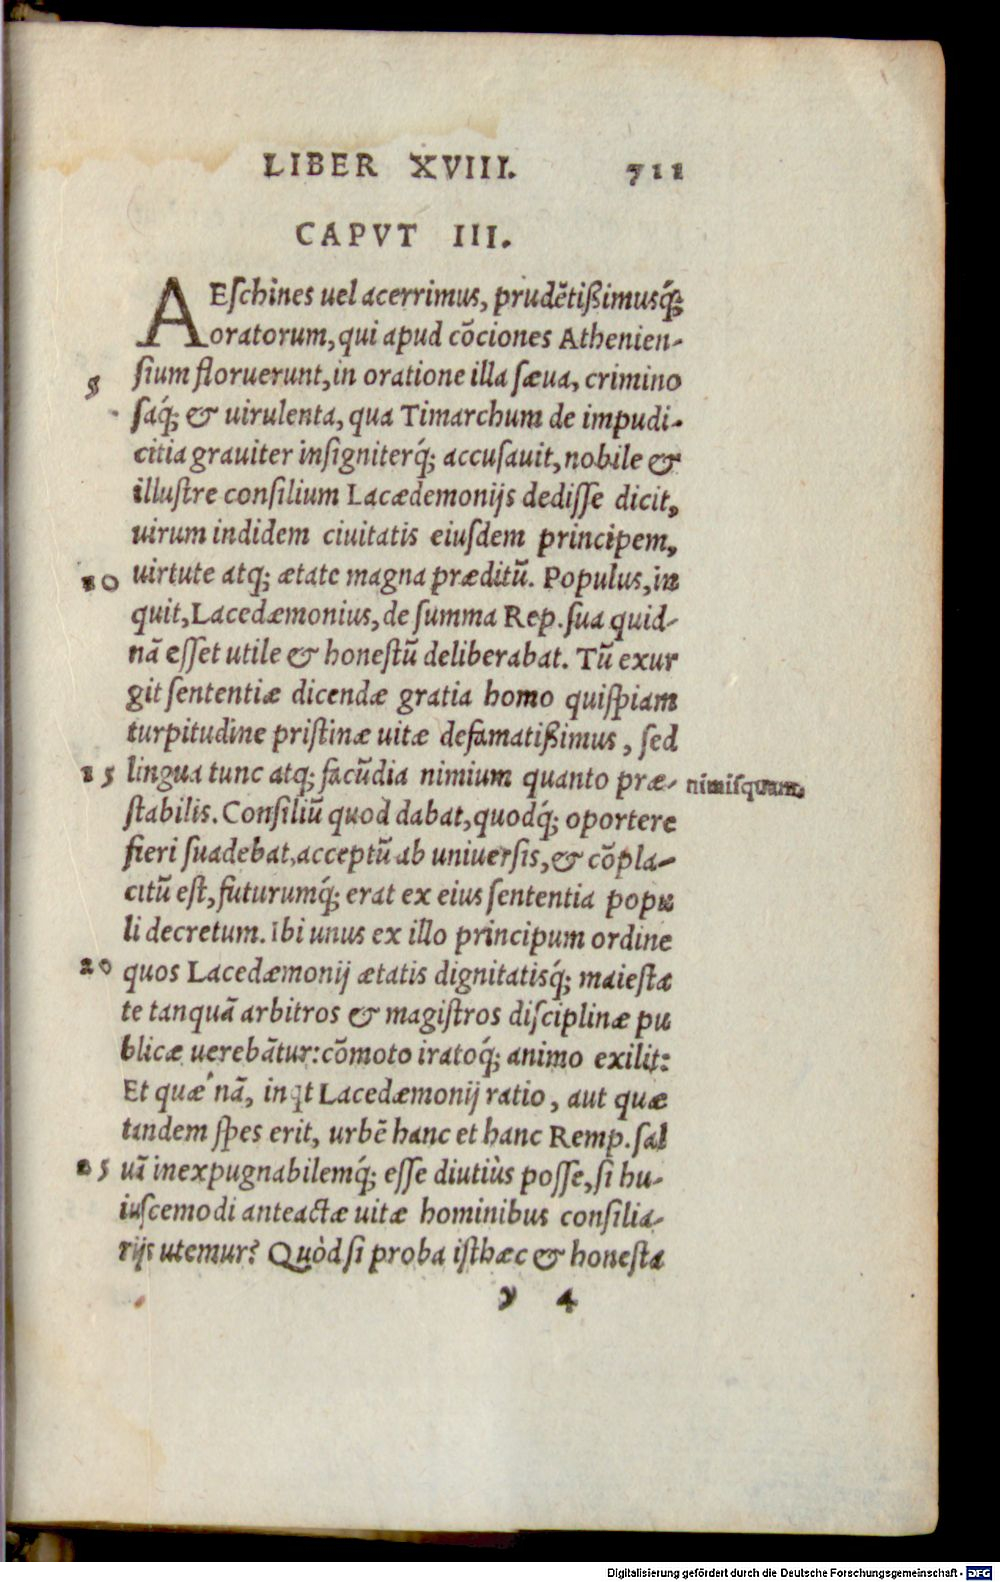 LIBER XVIII. 711
CAPVT III.
AEſchines uel acerrimus, prudētißimusq́;
oratorum, qui apud cōciones Athenien-
5 ſium floruerunt, in oratione illa ſæua, crimino
ſaq́; & uirulenta, qua Timarchum de impudi-
citia grauiter inſigniterq́; accuſauit, nobile &
illuſtre conſilium Lacædemonijs dediſſe dicit,
uirum indidem ciuitatis eiuſdem principem,
10 uirtute atq; ætate magna præditū. Populus, in
quit, Lacedæmonius, de ſumma Rep. ſua quid-
nā eſſet utile & honeſtū deliberabat. Tū exur
git ſententiæ dicendæ gratia homo quiſpiam
turpitudine priſtinæ uitæ defamatißimus, ſed
15 lingua tunc atq; facūdia nimium quanto præ- nimiſquam.
ſtabilis. Conſiliū quod dabat, quodq́; oportere
fieri ſuadebat, acceptū ab uniuerſis, & cōpla-
citū eſt, futurumq́; erat ex eius ſententia popu
li decretum. Ibi unus ex illo principum ordine
20 quos Lacedæmonij ætatis dignitatisq́; maieſta
te tanquā arbitros & magiſtros diſciplinæ pu
blicæ uerebātur: cōmoto iratoq́; animo exilit:
Et quæ nā, inqt Lacedæmonij ratio, aut quæ
tandem ſpes erit, urbē hanc et hanc Remp. ſal
25 uā inexpugnabilemq́; eſſe diutiùs poſſe, ſi hu-
iuſcemodi anteactæ uitæ hominibus conſilia-
rijs utemur? Quòd ſi proba iſthæc & honeſta
y 4
Digitalisierung gefördert durch die Deutsche Forschungsgemeinschaft - DFG